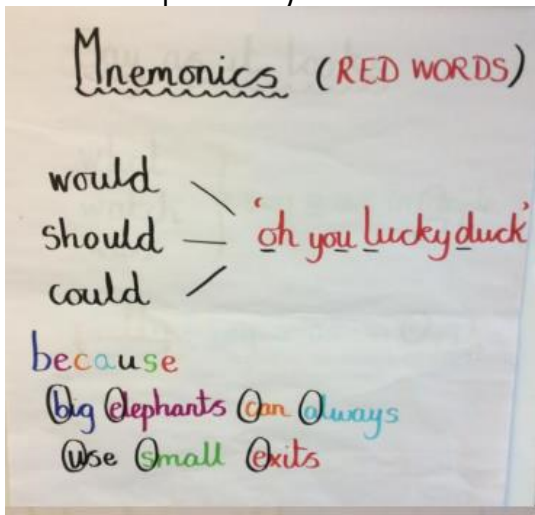 Mnemonics (RED WORDS)
would
should
could
'oh you lucky duck'
because
big elephants can always
use small exits